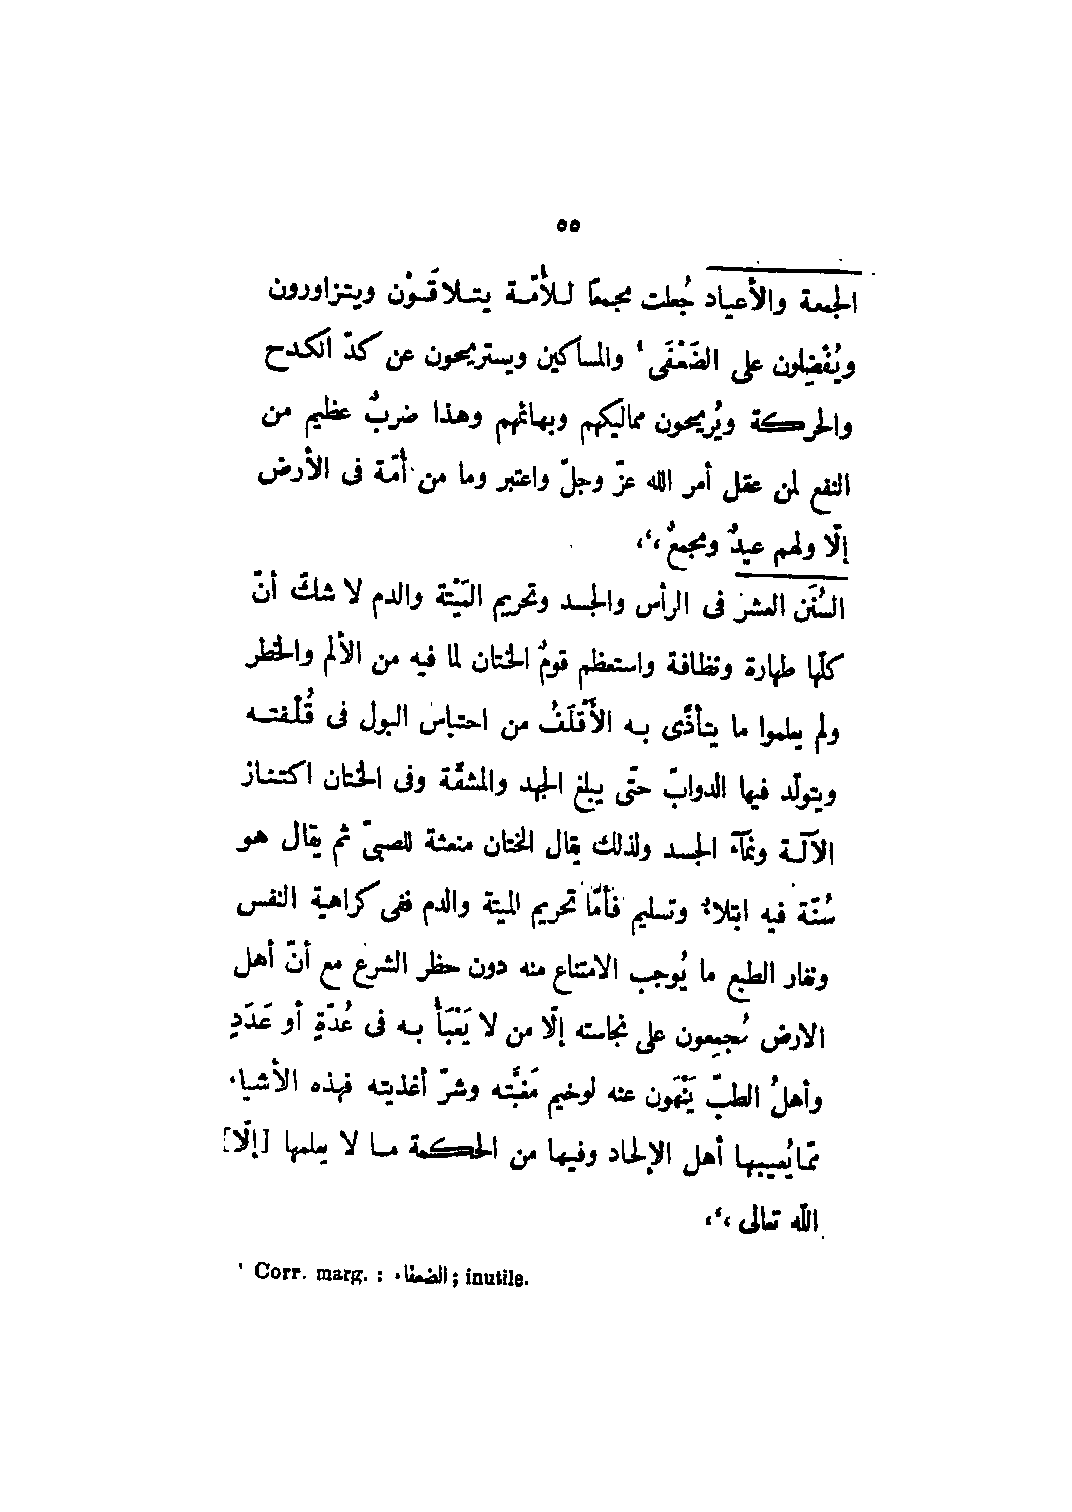 ٥٥
الجمعة والأعياد جُعلت مجمعًا للأُمّة يتلاقَوْن ويتزاورون
ويُفْضِلون على الضَعْفَى ¹ والمساكين ويستريحون عن كدّ الكدح
والحركة ويُريحون مماليكهم وبهائمهم وهذا ضربٌ عظيم من
النفع لمن عقل أمر الله عزّ وجلّ واعتبر وما من أُمّة فى الأرض
إلّا ولهم عيدٌ ومجمعٌ ،'،
السُنَن العشر فى الرأس والجسد وتحريم المَيْتة والدم لا شكّ أنّ
كلّها طهارة ونظافة واستعظم قومٌ الختان لما فيه من الألم والخطر
ولم يعلموا ما يتأذّى به الأَقْلَفُ من احتباس البول فى قُلْفته
ويتولّد فيها الدوابّ حتّى يبلغ الجهد والمشقّة وفى الختان اكتناز
الآلة ونمآء الجسد ولذلك يقال الختان منعثة للصبىّ ثم يقال هو
سُنّة فيه ابتلاءٌ وتسليم فأمّا تحريم الميتة والدم ففى كراهية النفس
ونفار الطبع ما يُوجب الامتناع منه دون حظر الشرع مع أنّ أهل
الارض مُجمِعون على نجاسته إلّا من لا يَعْبَأُ به فى عُدّةٍ أو عَدَدٍ
وأهلُ الطبّ يَنْهَون عنه لوخيم مَغبَّته وشرّ أغذيته فهذه الأشياء
ممّا يُعيبها أهل الإلحاد وفيها من الحكمة ما لا يعلمها [إلّا]
اللّه تعالى ،'،
¹ Corr. marg. : الضعفاء ; inutile.